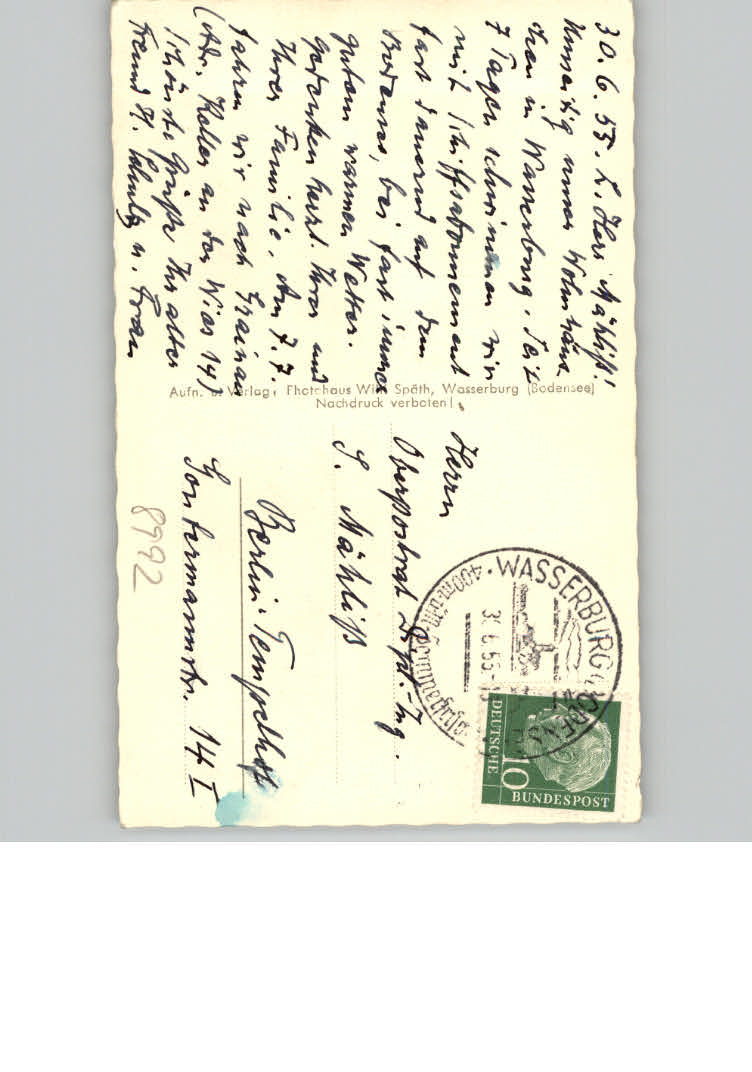 30.6.55. L. Herr Mähliß!
Umseitig unser Wohnhäus-
chen in Wasserburg. Seit
7 Tagen schwimmen wir
mit Schiffsabonnement
fast dauernd auf dem
Bodensee, bei fast immer
gutem warmen Wetter.
Gedenken herzl. Ihrer und
Ihrer Familie. Am 7.7.
fahren wir nach Grainau
(Adr. Koller an der Wies 14)
Schönste Grüße Ihr alter
Freund u. Frau
Aufn. u. Verlag: Photohaus Wilh. Späth, Wasserburg (Bodensee)
Nachdruck verboten!
Herrn
Oberpostrat Dipl.-Ing.
S. Mähliß
Berlin-Tempelhof
Sontermannstr. 14 I
8992
WASSERBURG (BODENSEE)
400 m ü. M. Sommerfrische
DEUTSCHE
BUNDESPOST
10